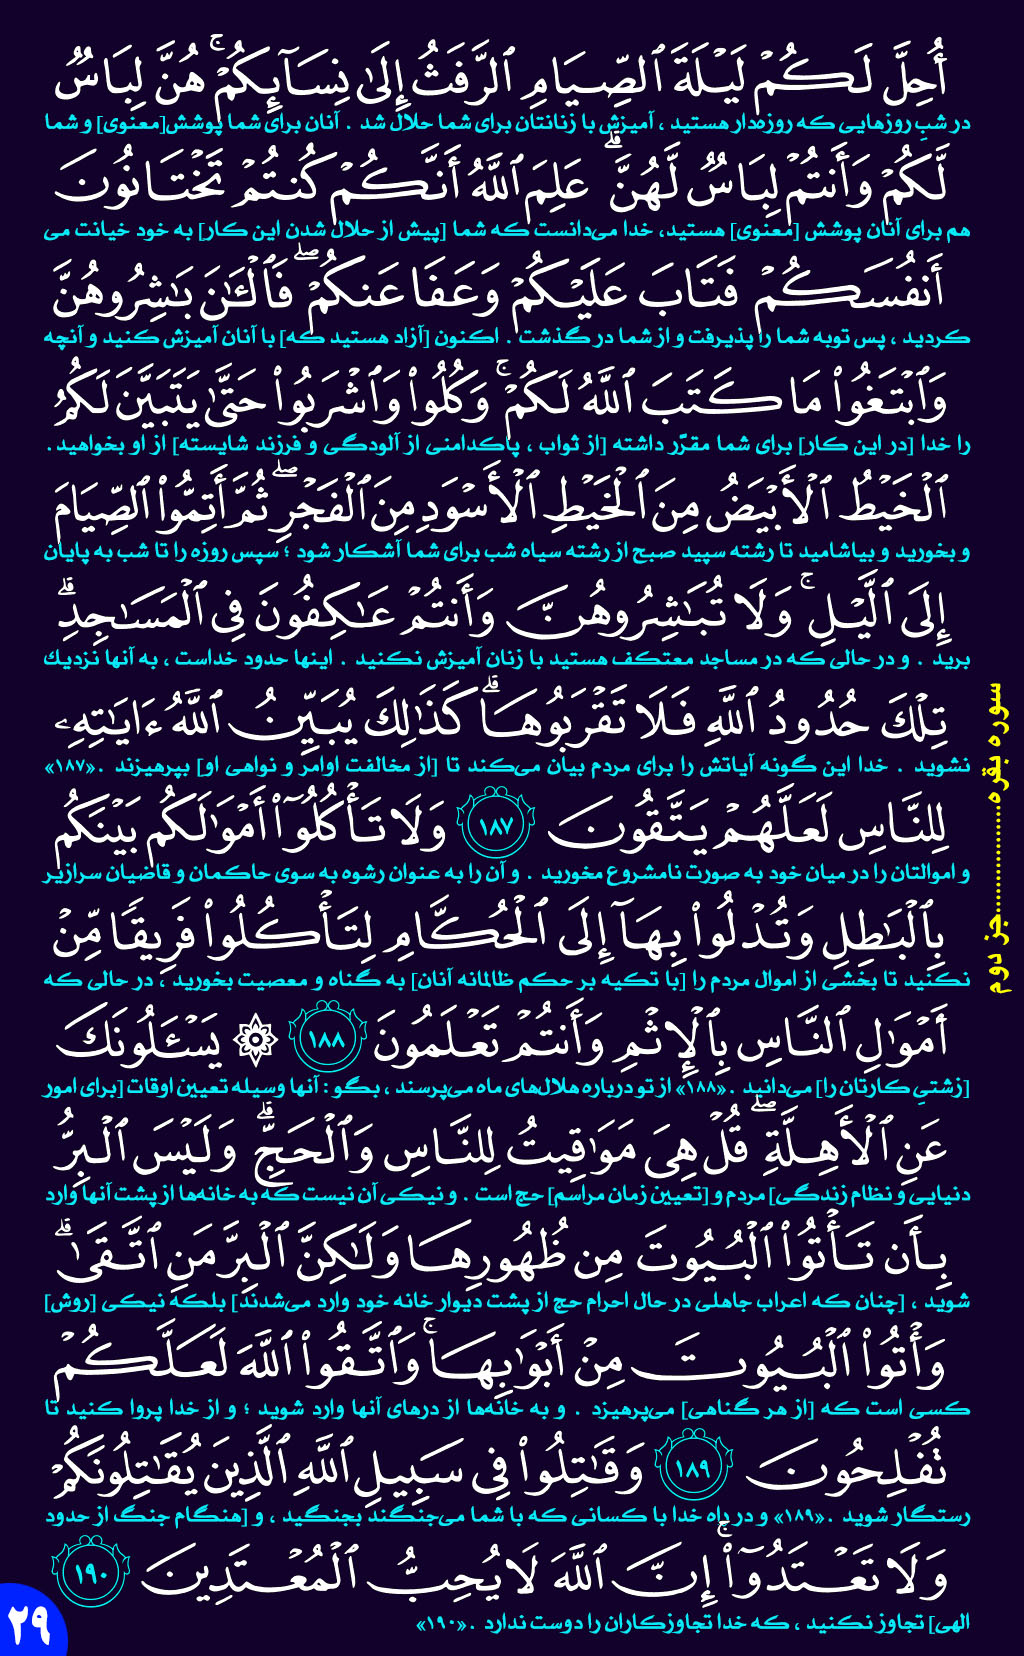 أُحِلَّ لَكُمْ لَيْلَةَ ٱلصِّيَامِ ٱلرَّفَثُ إِلَىٰ نِسَآئِكُمْ ۚ هُنَّ لِبَاسٌ
در شبِ روزهایی که روزه‌دار هستید ، آمیزش با زنانتان برای شما حلال شد . آنان برای شما پوشش[معنوی] و شما
لَّكُمْ وَأَنتُمْ لِبَاسٌ لَّهُنَّ ۗ عَلِمَ ٱللَّهُ أَنَّكُمْ كُنتُمْ تَخْتَانُونَ
هم برای آنان پوشش [معنوی] هستید، خدا می‌دانست که شما [پیش از حلال شدن این کار] به خود خیانت می
أَنفُسَكُمْ فَتَابَ عَلَيْكُمْ وَعَفَا عَنكُمْ ۖ فَٱلْـَٔـٰنَ بَـٰشِرُوهُنَّ
کردید ، پس توبه شما را پذیرفت و از شما در گذشت . اکنون [آزاد هستید که] با آنان آمیزش کنید و آنچه
وَٱبْتَغُوا۟ مَا كَتَبَ ٱللَّهُ لَكُمْ ۚ وَكُلُوا۟ وَٱشْرَبُوا۟ حَتَّىٰ يَتَبَيَّنَ لَكُمُ
را خدا [در این کار] برای شما مقرّر داشته [از ثواب ، پاکدامنی از آلودگی و فرزند شایسته] از او بخواهید .
ٱلْخَيْطُ ٱلْأَبْيَضُ مِنَ ٱلْخَيْطِ ٱلْأَسْوَدِ مِنَ ٱلْفَجْرِ ۖ ثُمَّ أَتِمُّوا۟ ٱلصِّيَامَ
و بخورید و بیاشامید تا رشته سپید صبح از رشته سیاه شب برای شما آشکار شود ؛ سپس روزه را تا شب به پایان
إِلَى ٱلَّيْلِ ۚ وَلَا تُبَـٰشِرُوهُنَّ وَأَنتُمْ عَـٰكِفُونَ فِى ٱلْمَسَـٰجِدِ ۗ
برید . و در حالی که در مساجد معتکف هستید با زنان آمیزش نکنید . اینها حدود خداست ، به آنها نزدیك
تِلْكَ حُدُودُ ٱللَّهِ فَلَا تَقْرَبُوهَا ۗ كَذَٰلِكَ يُبَيِّنُ ٱللَّهُ ءَايَـٰتِهِۦ
نشوید . خدا این گونه آیاتش را برای مردم بیان می‌کند تا [از مخالفت اوامر و نواهی او] بپرهیزند .«۱۸۷»
لِلنَّاسِ لَعَلَّهُمْ يَتَّقُونَ ۱۸۷ وَلَا تَأْكُلُوٓا۟ أَمْوَٰلَكُم بَيْنَكُم
و اموالتان را در میان خود به صورت نامشروع مخورید . و آن را به عنوان رشوه به سوی حاکمان و قاضیان سرازیر
بِٱلْبَـٰطِلِ وَتُدْلُوا۟ بِهَآ إِلَى ٱلْحُكَّامِ لِتَأْكُلُوا۟ فَرِيقًا مِّنْ
نکنید تا بخشی از اموال مردم را [با تکیه بر حکم ظالمانه آنان] به گناه و معصیت بخورید ، در حالی که
أَمْوَٰلِ ٱلنَّاسِ بِٱلْإِثْمِ وَأَنتُمْ تَعْلَمُونَ ۱۸۸ ۞ يَسْـَٔلُونَكَ
[زشتیِ کارتان را] می‌دانید .«۱۸۸» از تو درباره هلال‌های ماه می‌پرسند ، بگو : آنها وسیله تعیین اوقات [برای امور
عَنِ ٱلْأَهِلَّةِ ۖ قُلْ هِىَ مَوَٰقِيتُ لِلنَّاسِ وَٱلْحَجِّ ۗ وَلَيْسَ ٱلْبِرُّ
دنیایی و نظام زندگی] مردم و [تعیین زمان مراسم] حج است . و نیکی آن نیست که به خانه‌ها از پشت آنها وارد
بِأَن تَأْتُوا۟ ٱلْبُيُوتَ مِن ظُهُورِهَا وَلَـٰكِنَّ ٱلْبِرَّ مَنِ ٱتَّقَىٰ ۗ
شوید ، [چنان که اعراب جاهلی در حال احرام حج از پشت دیوار خانه خود وارد می‌شدند] بلکه نیکی [روش]
وَأْتُوا۟ ٱلْبُيُوتَ مِنْ أَبْوَٰبِهَا ۚ وَٱتَّقُوا۟ ٱللَّهَ لَعَلَّكُمْ
کسی است که [از هر گناهی] می‌پرهیزد . و به خانه‌ها از درهای آنها وارد شوید ؛ و از خدا پروا کنید تا
تُفْلِحُونَ ۱۸۹ وَقَـٰتِلُوا۟ فِى سَبِيلِ ٱللَّهِ ٱلَّذِينَ يُقَـٰتِلُونَكُمْ
رستگار شوید .«۱۸۹» و در راه خدا با کسانی که با شما می‌جنگند بجنگید ، و [هنگام جنگ از حدود
وَلَا تَعْتَدُوٓا۟ ۚ إِنَّ ٱللَّهَ لَا يُحِبُّ ٱلْمُعْتَدِينَ ۱۹۰
الهی] تجاوز نکنید ، که خدا تجاوزکاران را دوست ندارد .«۱۹۰»
سوره بقره...............جز دوم
۲۹